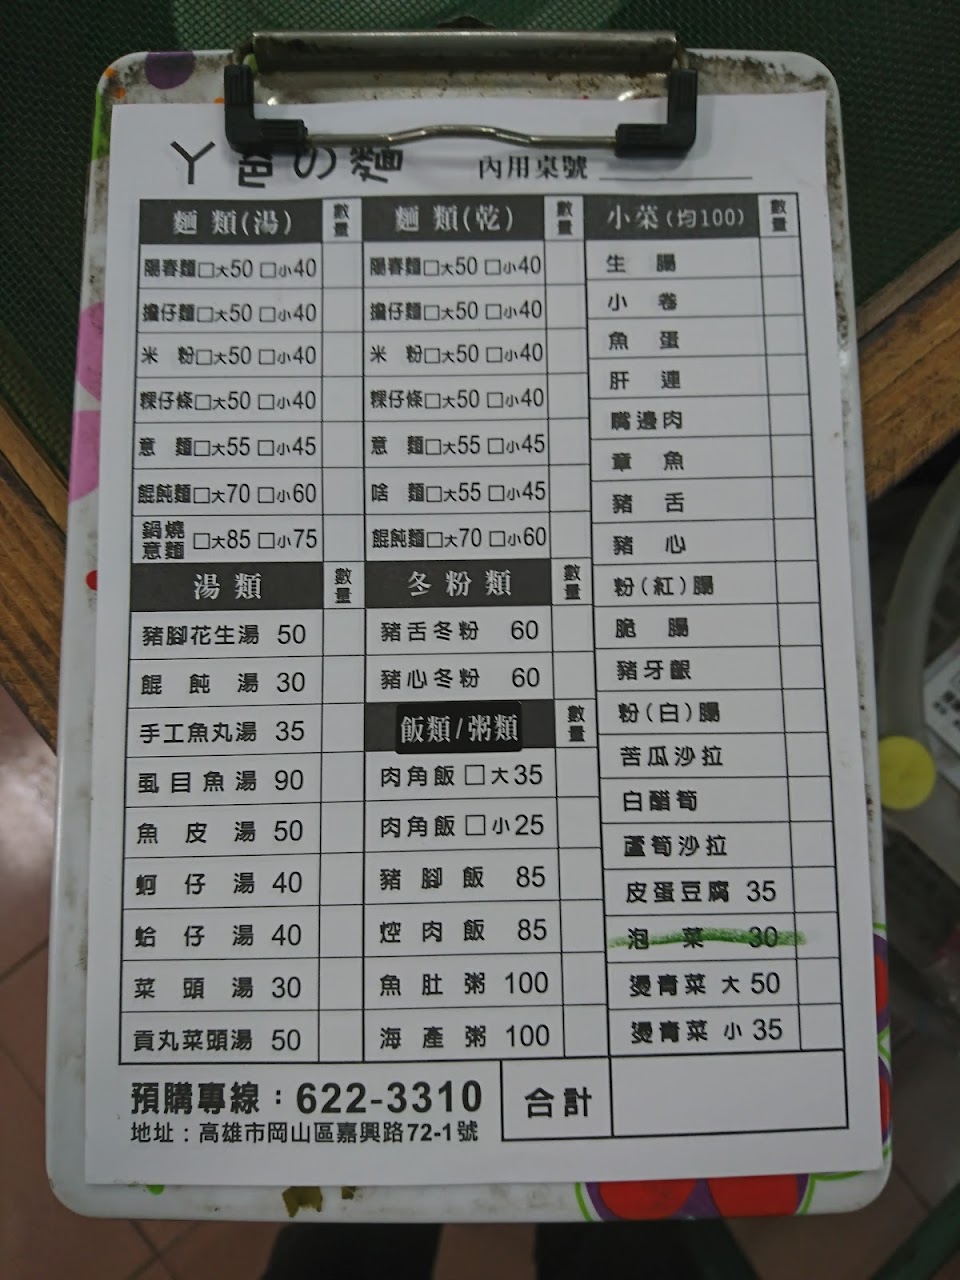 丫爸の麵 內用桌號
麵類(湯) 數量
陽春麵□大50 □小40
擔仔麵□大50 □小40
米粉□大50 □小40
粿仔條□大50 □小40
意麵□大55 □小45
餛飩麵□大70 □小60
鍋燒意麵□大85 □小75
湯類 數量
豬腳花生湯 50
餛飩湯 30
手工魚丸湯 35
虱目魚湯 90
魚皮湯 50
蚵仔湯 40
蛤仔湯 40
菜頭湯 30
貢丸菜頭湯 50
麵類(乾) 數量
陽春麵□大50 □小40
擔仔麵□大50 □小40
米粉□大50 □小40
粿仔條□大50 □小40
意麵□大55 □小45
啥麵□大55 □小45
餛飩麵□大70 □小60
冬粉類 數量
豬舌冬粉 60
豬心冬粉 60
飯類/粥類 數量
肉角飯□大35
肉角飯□小25
豬腳飯 85
焢肉飯 85
魚肚粥 100
海產粥 100
小菜(均100) 數量
生腸
小卷
魚蛋
肝連
嘴邊肉
章魚
豬舌
豬心
粉(紅)腸
脆腸
豬牙齦
粉(白)腸
苦瓜沙拉
白醋筍
蘆筍沙拉
皮蛋豆腐 35
泡菜 30
燙青菜 大 50
燙青菜 小 35
預購專線：622-3310
地址：高雄市岡山區嘉興路72-1號
合計